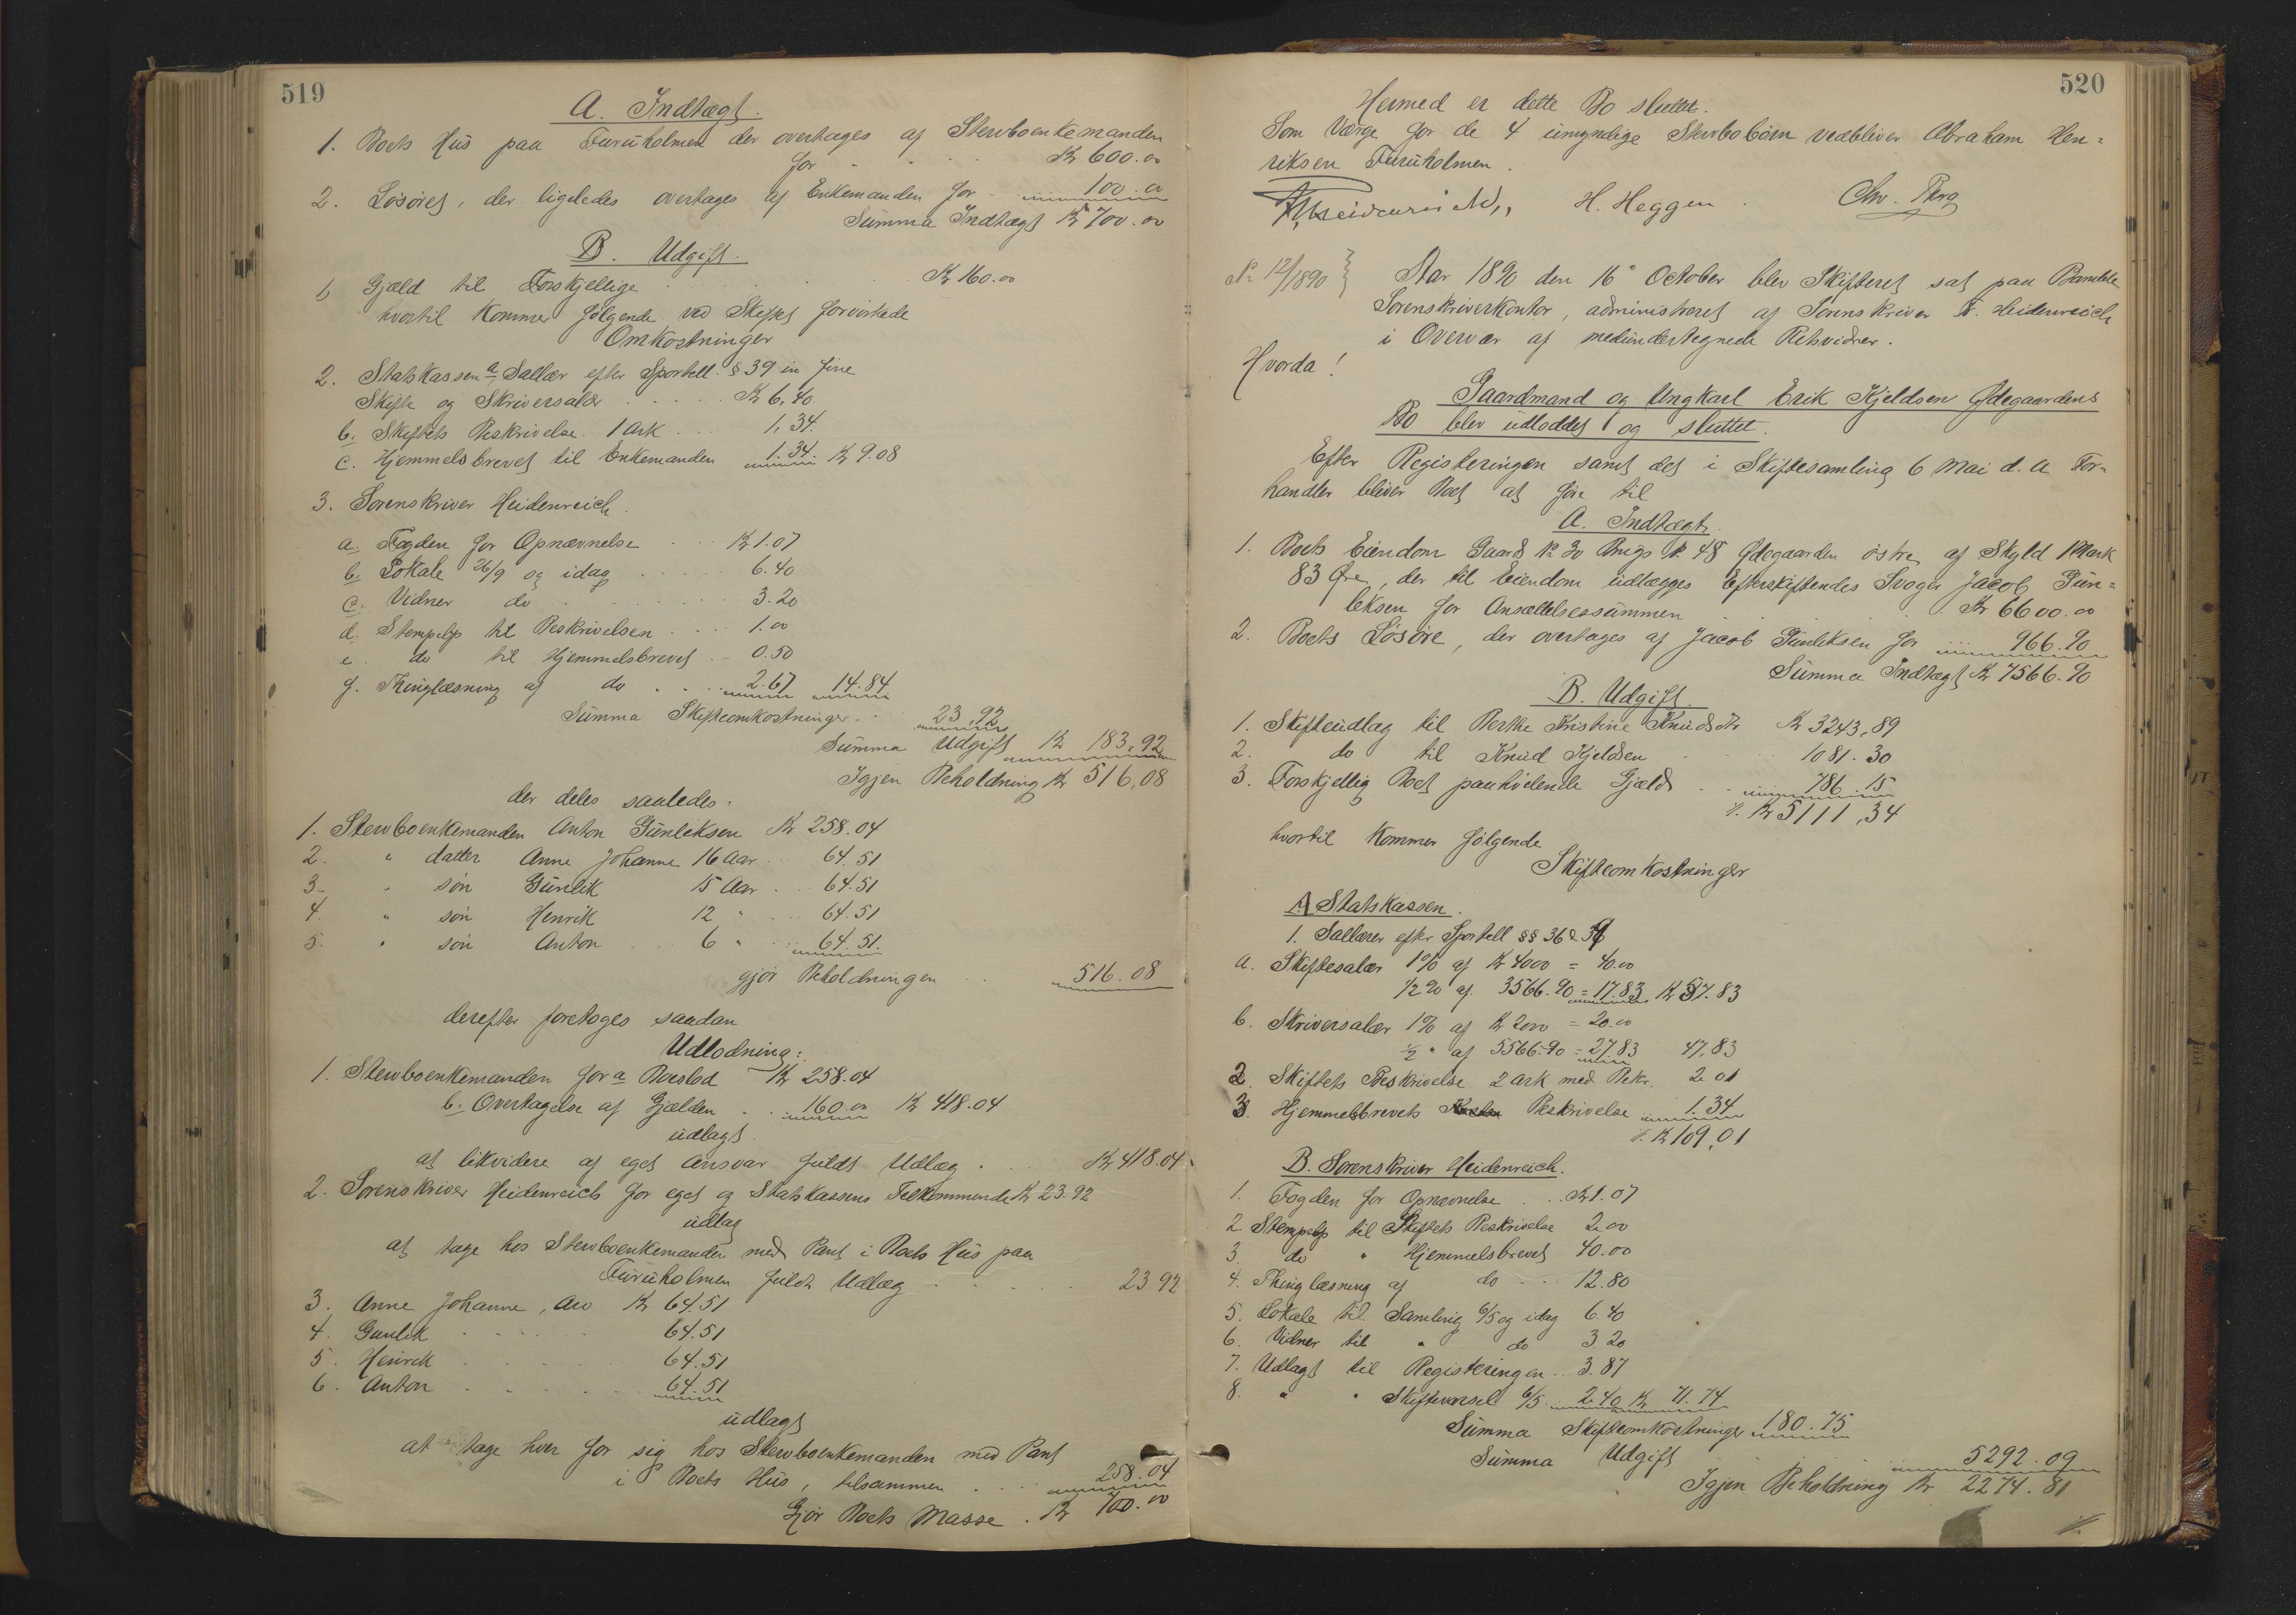 519
A. Indtægt.
1. Boets Hus paa Furuholmen der overtages af Stervboenkemanden
for . . . . Kr 600.00
2. Løsøret, der ligeledes overtages af Enkemanden for 100.00
Summa Indtægt Kr 700.00
B. Udgift.
1. Gjæld til Forskjellige . . . Kr 160.00
hvortil kommer følgende ved Skiftet forvirkede
Omkostninger
2. Statskassen a, Sallær efter Sportell. § 39 in fine
Skifte og Skriversalær . . . . Kr 6.40.
b. Skiftets Beskrivelse. 1 Ark . . 1,34.
c. Hjemmelsbrevet til Enkemanden 1.34. Kr 9.08
3. Sorenskriver Heidenreich.
a. Fogden for Opnævnelse . . Kr 1.07
b. Lokale 26/9 og idag . . . 6.40
c. Vidner do . . . . 3.20
d. Stempelp til Beskrivelsen . . . 1.00
e. do til Hjemmelsbrevet . . 0.50
f. Thinglæsning af do . . . 2.67 14.84
Summa Skifteomkostninger . . 23,92
Summa Udgift Kr 183,92
Igjen Beholdning Kr 516,08
der deles saaledes:
1. Stervboenkemanden Anton Gunleksen Kr 258.04
2. " datter Anne Johanne 16 Aar . 64.51
3. " søn Gunlik 15 Aar . . 64.51
4. " søn Henrik 12 " . . 64.51
5. " søn Anton . . 6 " . . 64.51.
gjør Beholdningen . . 516.08
derefter foretoges saadan
Udlodning:
1. Stervboenkemanden for a Boeslod Kr 258.04
b. Overtagelse af Gjælden . . 160.00 Kr 418.04
udlagt
at likvidere af eget Ansvar fuldt Udlæg . . Kr 418.04.
2. Sorenskriver Heidenreich for eget og Statskassens Tilkommende Kr 23.92
udlag
at tage hos Stervboenkemanden med Pant i Boets Hus paa
Furuholmen fuldt Udlæg . . . . 23.92
3. Anne Johanne, Arv Kr 64.51
4. Gunlik . . . . 64.51
5. Henrik . . . . 64.51
6. Anton . . . . 64.51
udlagt
at tage hver for sig hos Stervboenkemanden med Pant
i Boets Hus, tilsammen . . . . 258.04
Gjør Boets Masse . Kr 700.00
520
Hermed er dette Bo sluttet.
Som Værge for de 4 umyndige Stervbobørn vedbliver Abraham Hen=
riksen Furuholmen.
H. Heggen. Chr. Berg
No 12/1890 } Aar 1890 den 16de October blev Skifteret sat paa Bamble
Sorenskriverkontor, administreret af Sorenskriver Fr. Heidenreich
i Overvær af medundertegnede Retsvidner.
Hvorda!
Gaardmand og Ungkarl Erik Kjeldsen Ødegaardens
Bo blev udloddet og sluttet.
Efter Registeringen samt det i Skiftesamling 6 Mai d. A. For=
handler bliver Boet at føre til
A. Indtægt.
1. Boets Eiendom Gaards No 30 Brugs No 48 Ødegaarden østre, af Skyld 1 Mark
83 Øre, der til Eiendom udlægges Efterskiftendes Svoger Jacob Gun=
leksen for Ansættelsessummen . . . Kr 6600.00
2. Boets Løsøre, der overtages af Jacob Gunleksen for 966.90
Summa Indtægt Kr 7566.90
B. Udgift.
1. Skifteudlæg til Berthe Kristine Knudsdtr Kr 3243,89
2. do til Knud Kjeldsen . . 1081.30
3. Forskjellig Boet paahvilende Gjæld . . 786.15
%. Kr 5111,34
hvortil kommer følgende
Skifteomkostninger
A Statskassen.
1. Sallærer efter Sportell §§ 36 & 39
a. Skiftesalær 1% af Kr 4000 = 40.00
1/2 % af. 3566.90 = 17.83 Kr 57.83
b. Skriversalær 1% af Kr 2000 = 20.00
1/2 " af 5566.90 = 27.83 47.83
2. Skiftets Beskrivelse 2 Ark med Bekr. 2.01
3. Hjemmelsbrevets Beskrivelse 1.34
%. Kr 109,01
B. Sorenskriver Heidenreich.
1. Fogden for Opnævnelse . . Kr 1.07
2. Stempelp til Skiftets Beskrivelse 2.00
3. do " Hjemmelsbrevet 40.00
4. Thinglæsning af do . . . 12.80
5. Lokale til Samling 6/5 og idag 6.40
6. Vidner til " do 3.20
7. Udlagt til Registeringen . . 3.87
8. " " Skiftevarsel 6/5 . . 2.40 Kr 71.74
Summa Skifteomkostninger 180.75
Summa Udgift . . . . 5292.09
Igjen Beholdning Kr 2274.81
%.